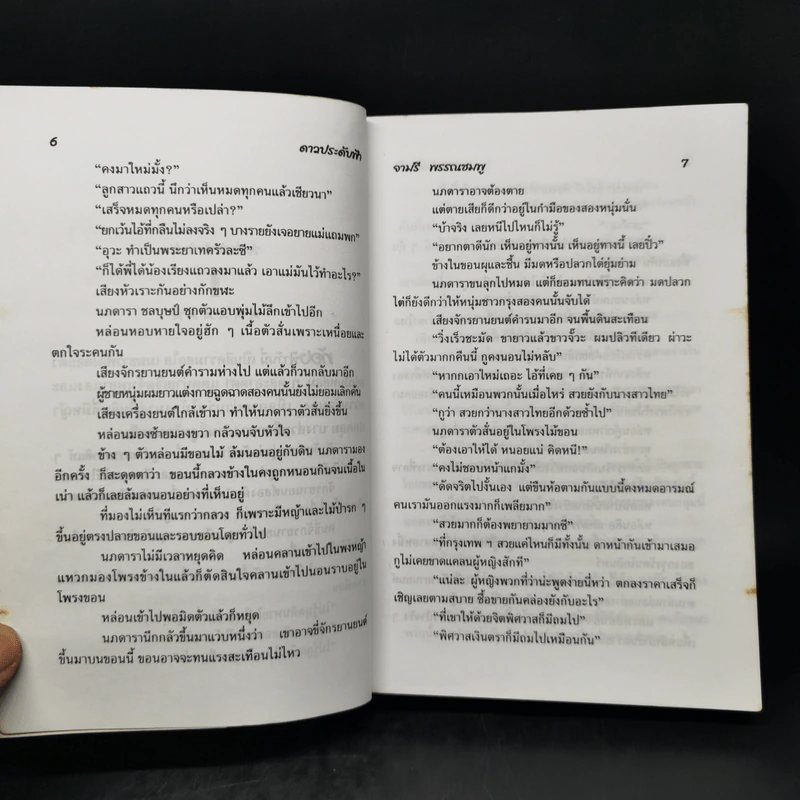 6
ดาวประดับฟ้า
“คงมาใหม่มั้ง?”
“ลูกสาวแถวนี้ นึกว่าเห็นหมดทุกคนแล้วเชียวนา”
“เสร็จหมดทุกคนหรือเปล่า?”
“ยกเว้นไอ้ที่กลืนไม่ลงจริง ๆ บางรายยังเจอยายแม่แถมพก”
“อุวะ ทำเป็นพระยาเทครัวละซี”
“ก็ได้พี่ได้น้องเรียงแถวลงมาแล้ว เอาแม่มันไว้ทำอะไร?”
เสียงหัวเราะกันอย่างกักขฬะ
นภดารา ชลบุษป์ ซุกตัวแอบพุ่มไม้ลึกเข้าไปอีก
หล่อนหอบหายใจอยู่ฮัก ๆ เนื้อตัวสั่นเพราะเหนื่อยและ
ตกใจระคนกัน
เสียงจักรยานยนต์คำรามห่างไป แต่แล้วก็วนกลับมาอีก
ผู้ชายหนุ่มผมยาวแต่งกายฉูดฉาดสองคนนั้นยังไม่ยอมเลิกค้น
เสียงเครื่องยนต์ใกล้เข้ามา ทำให้นภดาราตัวสั่นยิ่งขึ้น
หล่อนมองซ้ายมองขวา กลัวจนจับหัวใจ
ข้าง ๆ ตัวหล่อนมีขอนไม้ ล้มนอนอยู่กับดิน นภดารามอง
อีกครั้ง ก็สะดุดตาว่า ขอนนี้กลวงข้างในคงถูกหนอนกินจนเนื้อใน
เน่า แล้วก็เลยล้มลงนอนอย่างที่เห็นอยู่
ที่มองไม่เห็นทีแรกว่ากลวง ก็เพราะมีหญ้าและไม้ป่ารก ๆ
ขึ้นอยู่ตรงปลายขอนและรอบขอนโดยทั่วไป
นภดาราไม่มีเวลาหยุดคิด หล่อนคลานเข้าไปในพงหญ้า
แหวกมองโพรงข้างในแล้วก็ตัดสินใจคลานเข้าไปนอนราบอยู่ใน
โพรงขอน
หล่อนเข้าไปพอมิดตัวแล้วก็หยุด
นภดารานึกกลัวขึ้นมาแวบหนึ่งว่า เขาอาจขี่จักรยานยนต์
ขึ้นมาบนขอนนี้ ขอนอาจจะทนแรงสะเทือนไม่ไหว
จามรี พรรณชมพู
7
นภดาราอาจต้องตาย
แต่ตายเสียก็ดีกว่าอยู่ในกำมือของสองหนุ่มนั่น
“บ้าจริง เลยหนีไปไหนก็ไม่รู้”
“อยากตาดีนัก เห็นอยู่ทางนั้น เห็นอยู่ทางนี้ เลยปิ๋ว”
ข้างในขอนผุและชื้น มีมดหรือปลวกไต่ยุ่มย่าม
นภดาราขนลุกไปหมด แต่ก็ยอมทนเพราะคิดว่า มดปลวก
ไต่ก็ยังดีกว่าให้หนุ่มชาวกรุงสองคนนั้นจับได้
เสียงจักรยานยนต์คำรนมาอีก จนพื้นดินสะเทือน
“วิ่งเร็วชะมัด ขายาวแล้วขาวจั๊วะ ผมปลิวทีเดียว ผ่าวะ
ไม่ได้ตัวมากกคืนนี้ กูคงนอนไม่หลับ”
“หากกเอาใหม่เถอะ ไอ้ที่เคย ๆ กัน”
“คนนี้เหมือนพวกนั้นเมื่อไหร่ สวยยังกับนางสาวไทย”
“กูว่า สวยกว่านางสาวไทยอีกด้วยซ้ำไป”
นภดาราตัวสั่นอยู่ในโพรงไม้ขอน
“ต้องเอาให้ได้ หนอยแน่ คิดหนี!”
“คงไม่ชอบหน้าแกมั้ง”
“ดัดจริตไปงั้นเอง แต่ขืนห้อตามกันแบบนี้คงหมดอารมณ์
คนเรามันออกแรงมากก็เพลียมาก”
“สวยมากก็ต้องพยายามมากซี”
“ที่กรุงเทพ ฯ สวยแค่ไหนก็มีทั้งนั้น ดาหน้ากันเข้ามาเสมอ
กูไม่เคยขาดแคลนผู้หญิงสักที”
“แน่ละ ผู้หญิงพวกที่ว่าน่ะพูดง่ายนี่หว่า ตกลงราคาเสร็จก็
เชิญเลยตามสบาย ซื้อขายกันคล่องยังกับอะไร”
“ที่เขาให้ด้วยจิตพิศวาสก็มีถมไป”
“พิศวาสเงินตราก็มีถมไปเหมือนกัน”